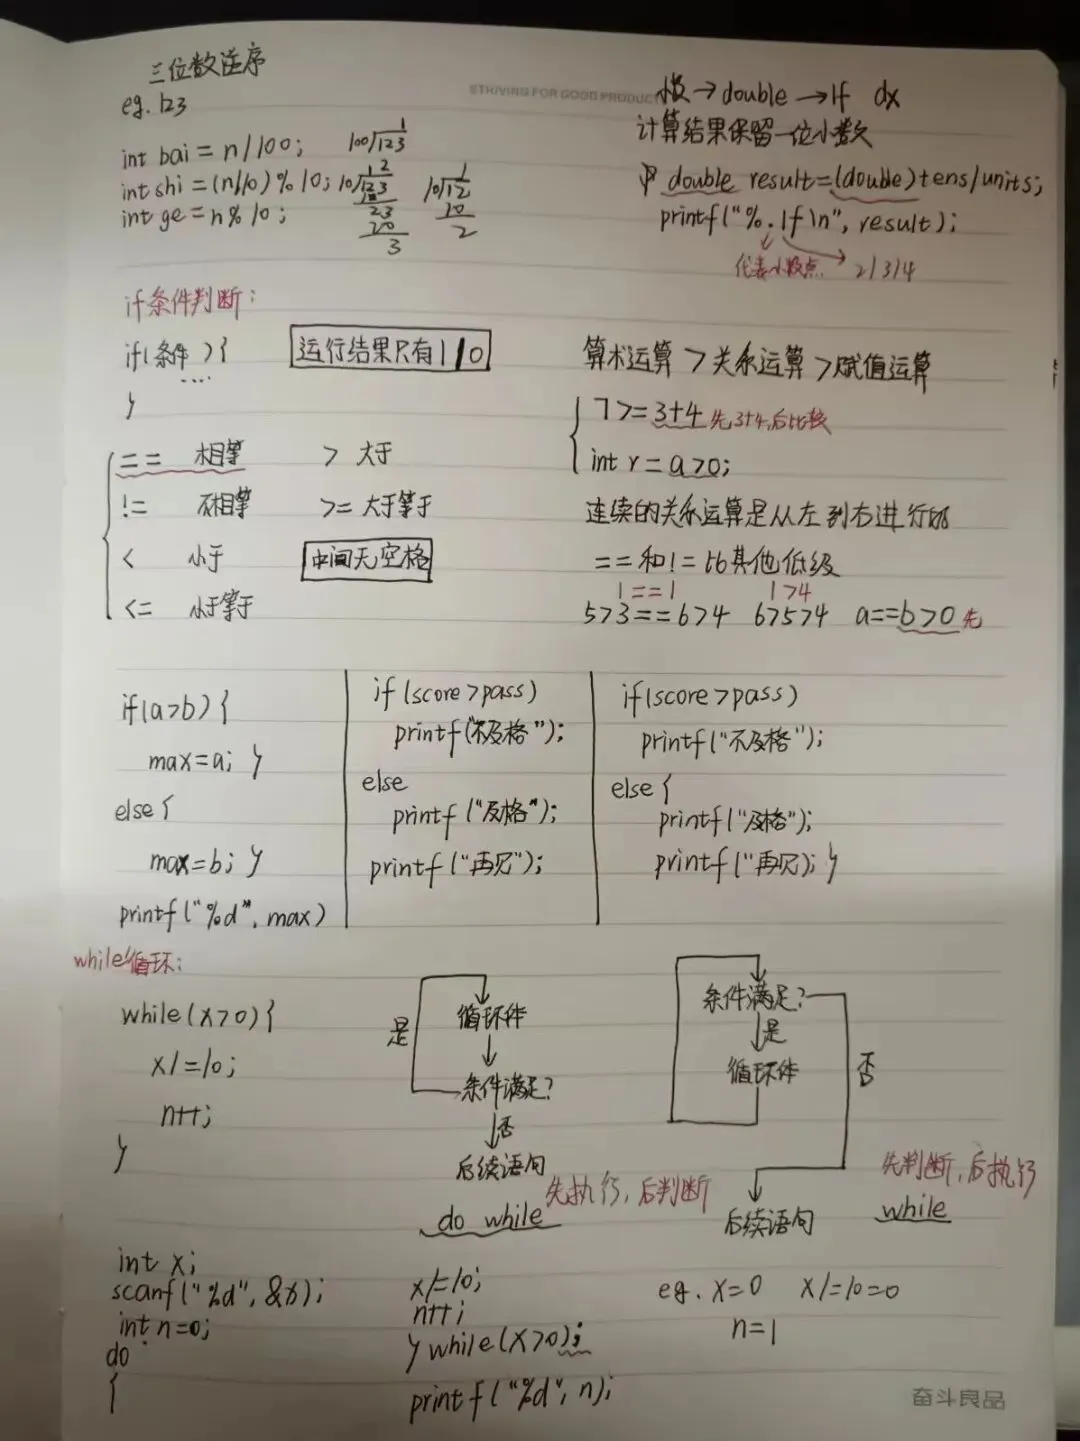 三位数逆序
eg. 123
int bai = n/100;
int shi = (n/10) % 10;
int ge = n % 10;
100/123 1
10/123 12
23
20
3
10/12 1
10
2
STRIVING FOR GOOD PRODUCT
→ double → lf dx
计算结果保留一位小数
double result=(double)tens/units;
printf("%.1f\n", result);
代表小数点 2/3/4
if条件判断:
if(条件){
...
}
运行结果只有1/0
算术运算 > 关系运算 > 赋值运算
7>=3+4 先3+4,后比较
int r = a>0;
== 相等 > 大于
!= 不相等 >= 大于等于
< 小于 中间无空格
<= 小于等于
连续的关系运算是从左到右进行的
==和!=比其他低级
1==1 1>4
5>3==6>4 6>5>4 a==b>0 先
if(a>b){
max=a; }
else{
max=b; }
printf("%d", max)
if(score>pass)
printf("不及格");
else
printf("及格");
printf("再见");
if(score>pass)
printf("不及格");
else{
printf("及格");
printf("再见); }
while循环:
while(x>0){
x/=10;
n++;
}
循环体
是
条件满足?
否
后续语句
先执行,后判断
do while
条件满足?
是
循环体
否
后续语句
先判断,后执行
while
int x;
scanf("%d", &x);
int n=0;
do
{
x/=10;
n++;
} while(x>0);
printf("%d", n);
eg. x=0 x/=10=0
n=1
奋斗良品